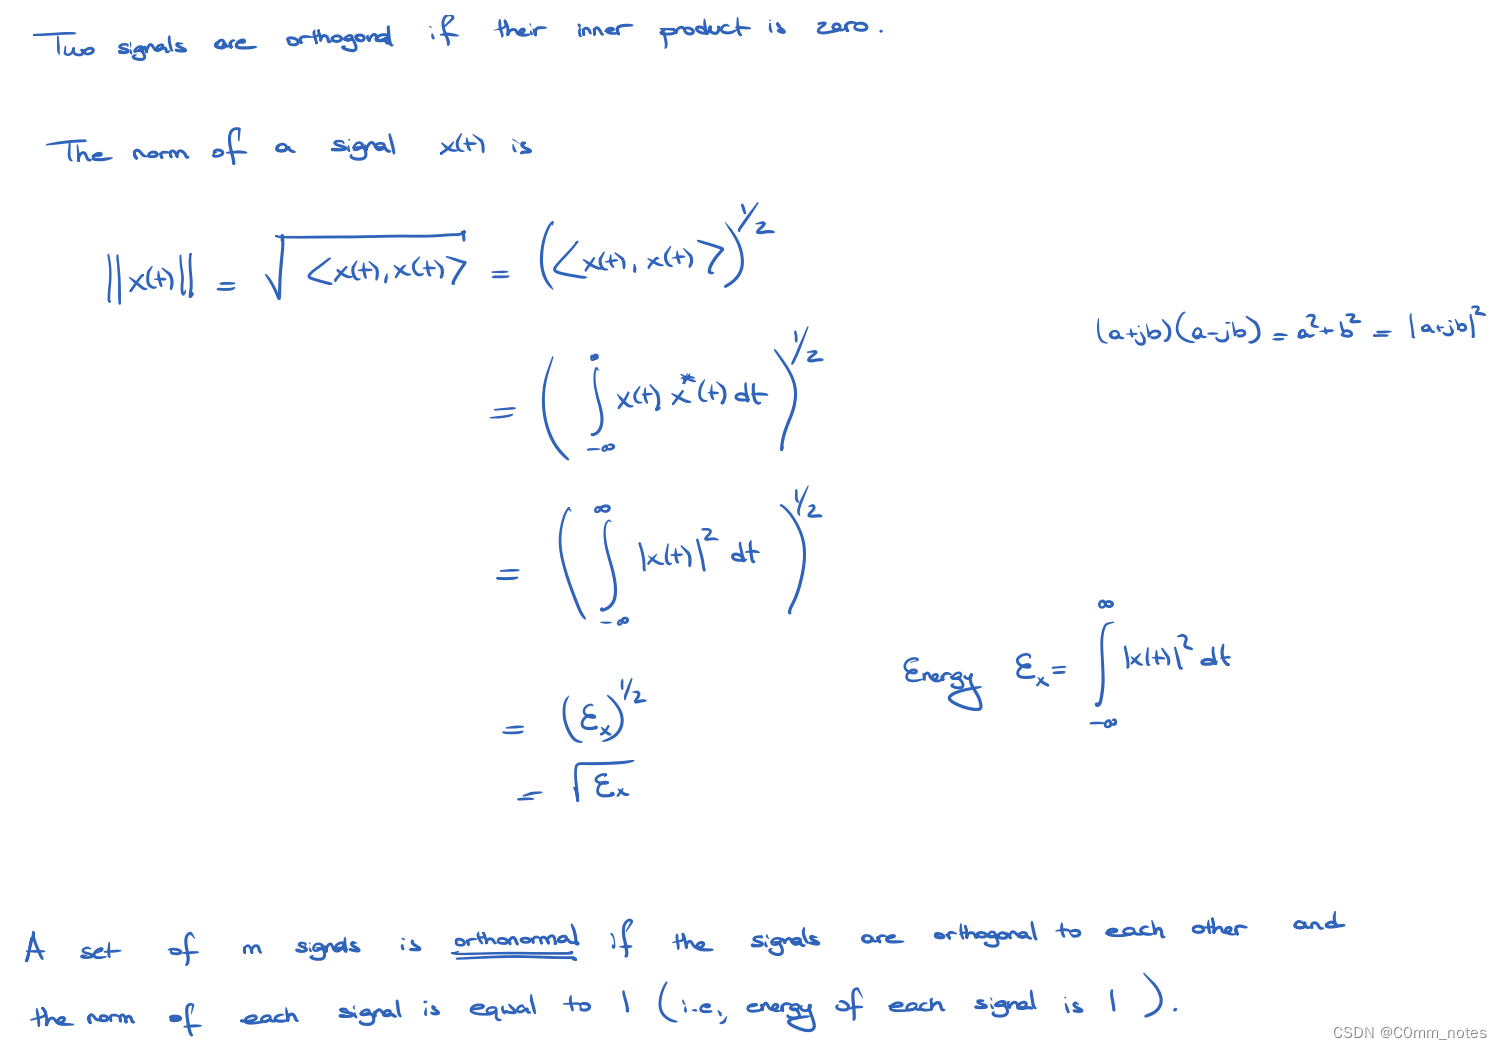 Two signals are orthogonal if their inner product is zero.
The norm of a signal x(t) is
||x(t)|| = √<x(t), x(t)> = (<x(t), x(t)>)^1/2
(a+jb)(a-jb) = a² + b² = |a+jb|²
= (∫_{-∞}^{∞} x(t) x*(t) dt)^1/2
= (∫_{-∞}^{∞} |x(t)|² dt)^1/2
Energy Ɛx = ∫_{-∞}^{∞} |x(t)|² dt
= (Ɛx)^1/2
= √Ɛx
A set of m signals is orthonormal if the signals are orthogonal to each other and
the norm of each signal is equal to 1 (i.e., energy of each signal is 1).
CSDN @C0mm_notes